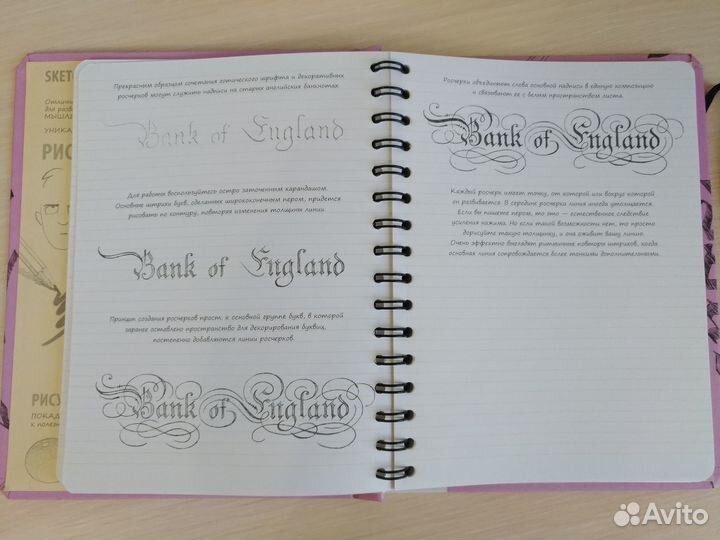 SKET
Отличн
для разв
МЫШЛ
УНИКА
РИС
РИСУ
ПОКАД
к полезн
Прекрасным образцом сочетания готического шрифта и декоративных
росчерков могут служить надписи на старых английских банкнотах.
Bank of England
Для работы воспользуйтесь остро заточенным карандашом.
Основные штрихи букв, сделанных ширококонечным пером, придется
рисовать по контуру, повторяя изменения толщины линии.
Bank of England
Принцип создания росчерков прост: к основной группе букв, в которой
заранее оставлено пространство для декорирования буквиц,
постепенно добавляются линии росчерков.
Bank of England
Росчерки объединяют слова основной надписи в единую композицию
и связывают ее с белым пространством листа.
Bank of England
Каждый росчерк имеет точку, от которой или вокруг которой
он развивается. В середине росчерка линия иногда утолщается.
Если вы пишете пером, то это — естественное следствие
усиления нажима. Но если такой возможности нет, то просто
дорисуйте такую толщинку, и она оживит вашу линию.
Очень эффектно выглядят ритмичные повторы штрихов, когда
основная линия сопровождается более тонкими дополнительными.
Avito